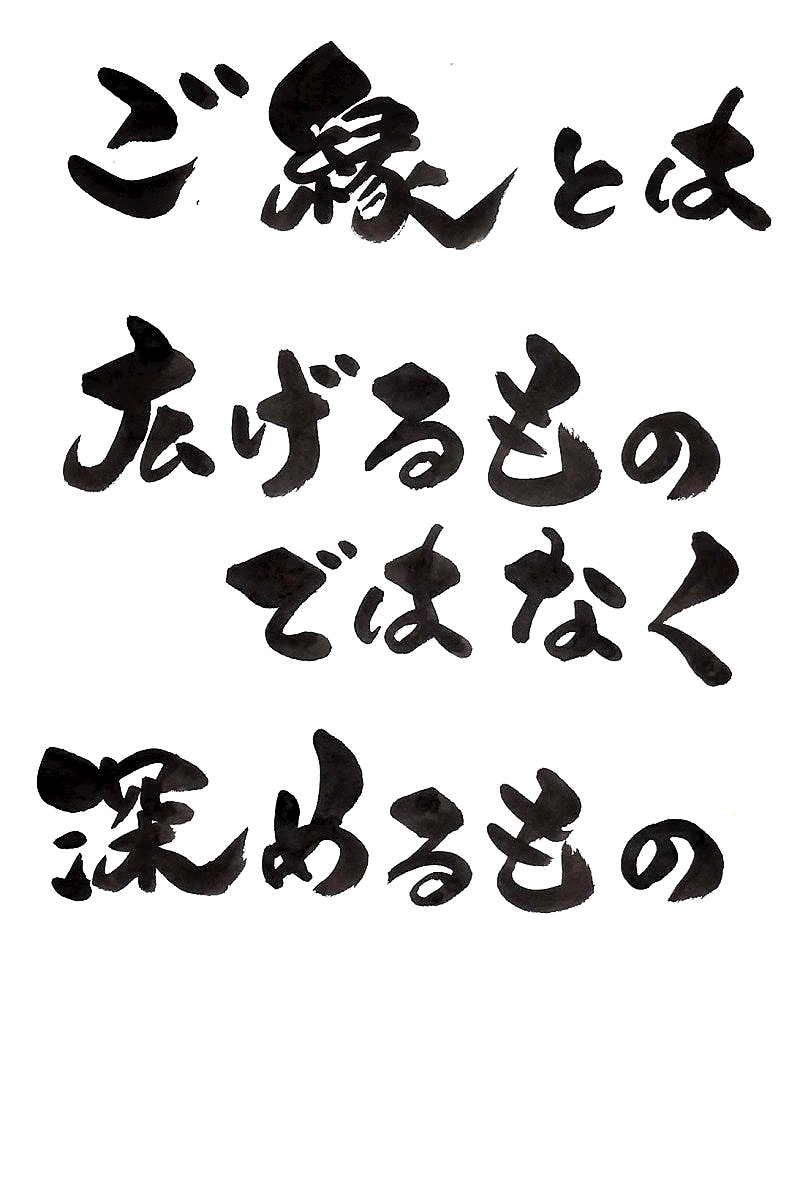 ご縁とは
広げるもの
ではなく
深めるもの